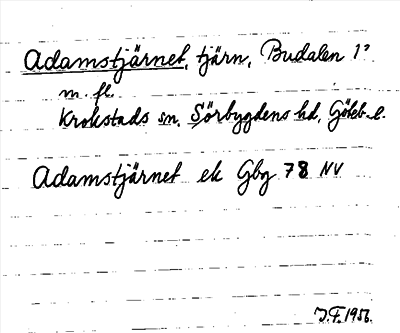 Adamstjärnet, tjärn, Budalen 1²
m. fl.
Krokstads sn, Sörbygdens hd, Göteb. l.
Adamstjärnet ek Gbg 78 NV
J.F. 1956.